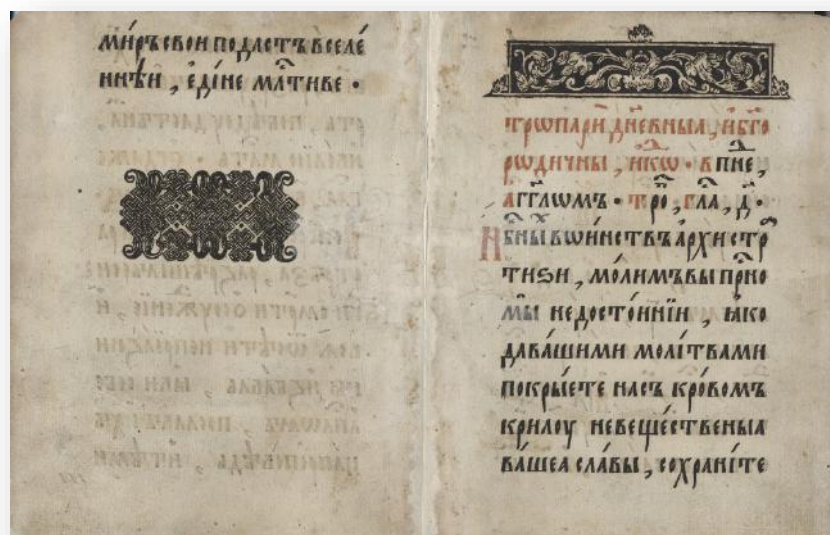 ми́ръ свои подастъ вселе́
ннѣи , еди́не млⷭ҇тиве •
трѡпарѝ днє́вныѧ , и҆ бг҃о
рѡдичны , и҆ кѡⷩ҇ • в пнⷣе ,
а҆́гг҃лѡмъ • трⷪ҇ , гла , д҃ •
Нбⷭ҇ныⷯ вѡ́инствъ а҆рхистрⷶ
тиѕи , мо́лимъ вы прⷭ҇но
мы̀ недосто́йнїи , ꙗ҆́ко
да ва́шими моли́твами
покры́ете на́съ кро́вомъ
крилоу̀ невеще́ственыѧ
ва́шеа сла́вы , сохрани́те